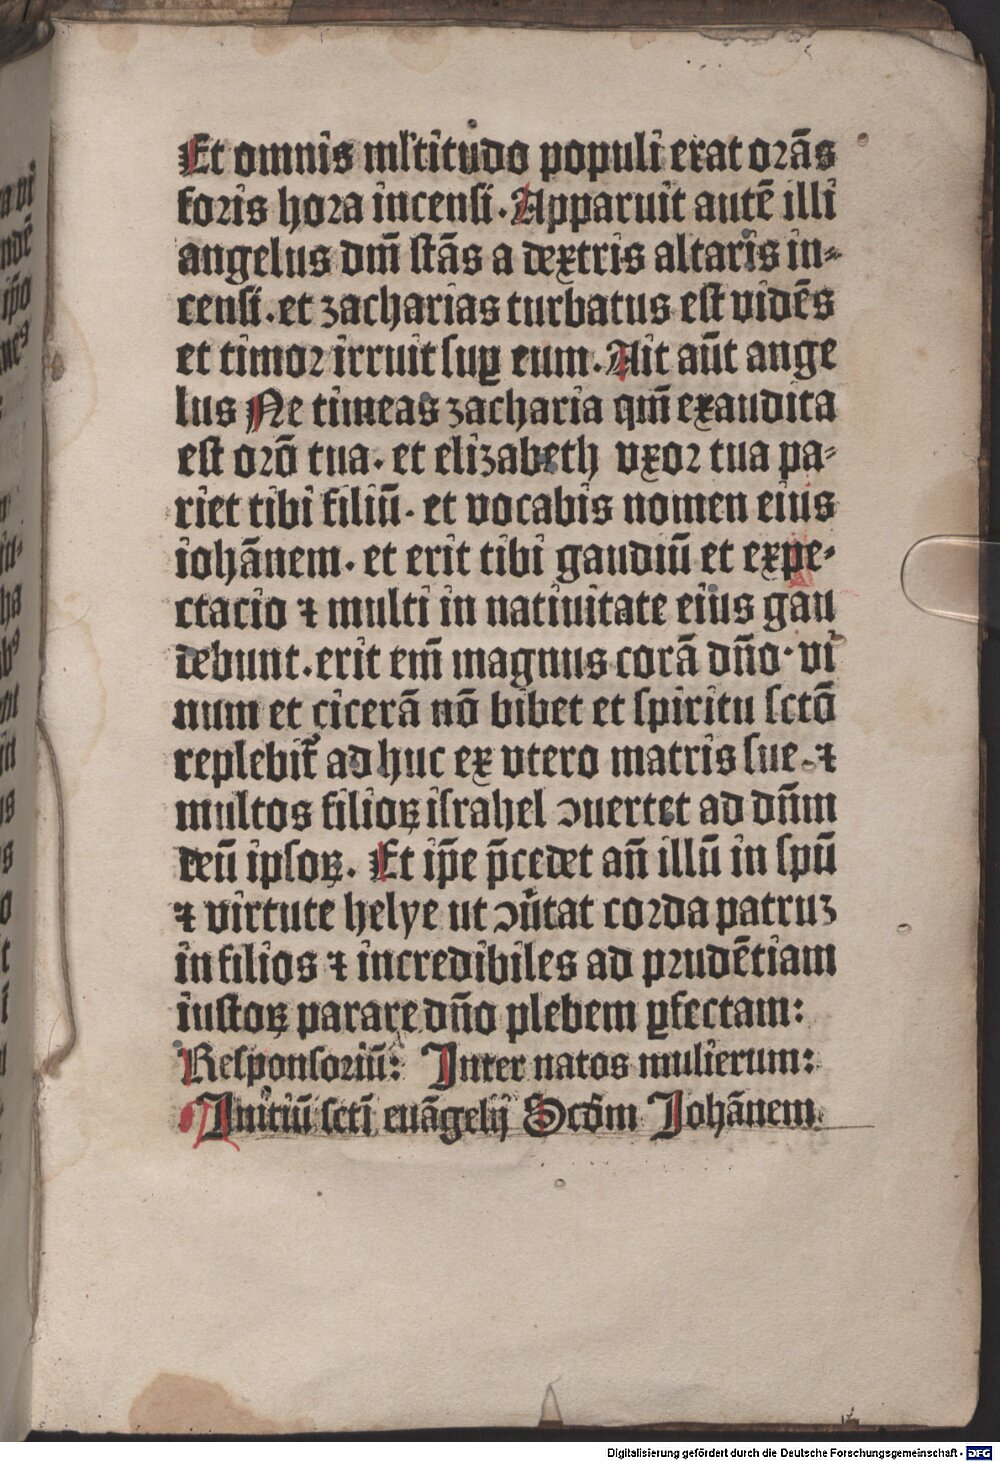 Et omnis ml̄titudo populi erat orās
foris hora incensi. Apparuit autē illi
angelus dm̄ stās a dextris altaris in⸗
censi. et zacharias turbatus est vidēs
et timor irruit suꝑ eum. Ait aūt ange
lus Ne timeas zacharia qm̄ exaudita
est orō tua. et elizabeth vxor tua pa⸗
riet tibi filiū. et vocabis nomen eius
iohānem. et erit tibi gaudiū et expe⸗
ctacio ⁊ multi in natiuitate eius gau
debunt. erit em̄ magnus corā dn̄o. vi
num et cicerā nō bibet et spiritu sctō
replebit̄ ad huc ex vtero matris sue. ⁊
multos filioꝝ israhel ɔuertet ad dn̄m
deū ipsoꝝ. Et ip̄e p̄cedet an̄ illū in spū
⁊ virtute helye ut ɔūtat corda patruꝫ
in filios ⁊ incredibiles ad prudētiam
iustoꝝ parare dn̄o plebem ꝑfectam:
Responsoriū: Inter natos mulierum:
Initiū scti̅ euāgelij Scd̄m Johānem.
Digitalisierung gefördert durch die Deutsche Forschungsgemeinschaft - DFG